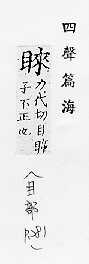 四聲篇海
睞
力代切目瞳
子不正也
(目部
P.281)